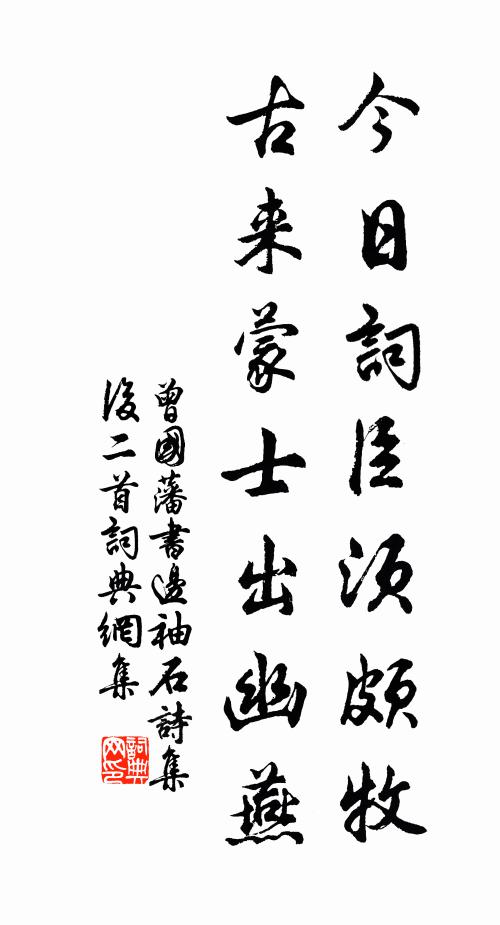 今日詞臣須頗牧
古来蒙士出幽燕
曾國藩書邊袖石詩集
後二首詞典網集
詞典网印